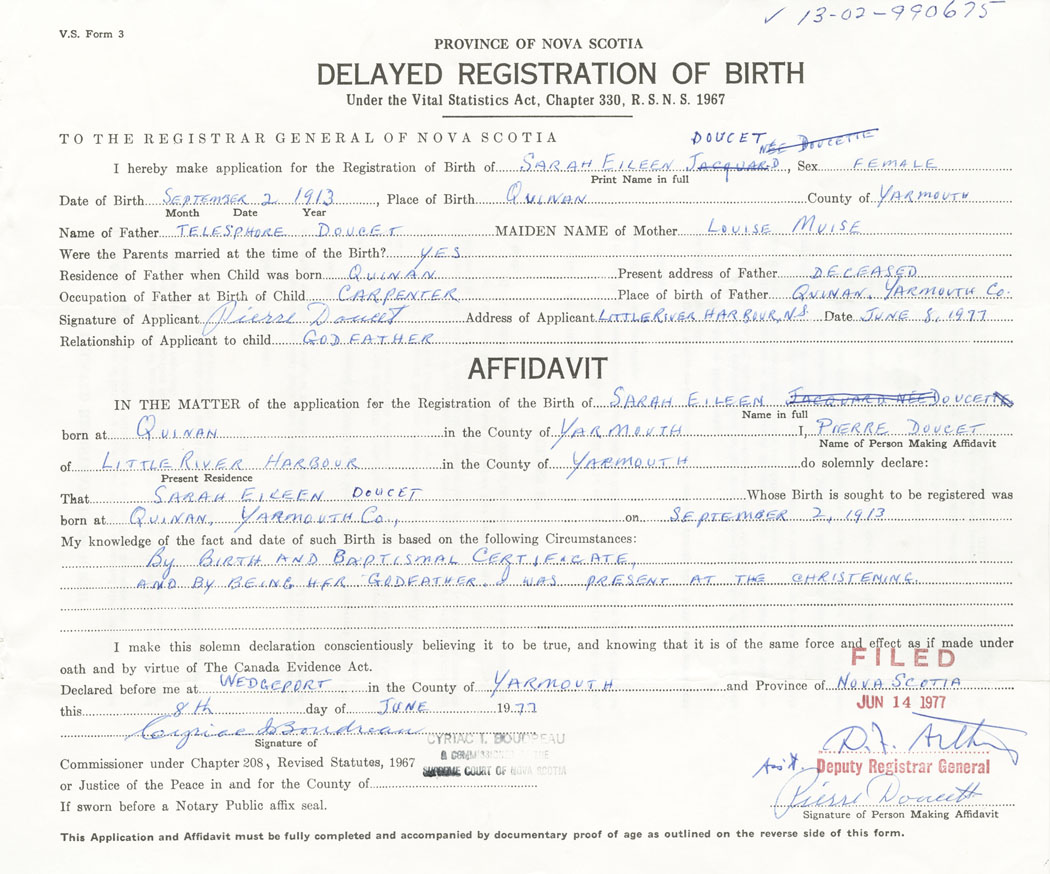 ✓ 13-02-990675
V.S. Form 3
PROVINCE OF NOVA SCOTIA
DELAYED REGISTRATION OF BIRTH
Under the Vital Statistics Act, Chapter 330, R.S.N.S. 1967
TO THE REGISTRAR GENERAL OF NOVA SCOTIA
DOUCET NÉE DOUCETTE
I hereby make application for the Registration of Birth of SARAH EILEEN JACQUARD, Sex FEMALE
Print Name in full
Date of Birth SEPTEMBER 2 1913, Place of Birth QUINAN County of YARMOUTH
Month Date Year
Name of Father TELESPHORE DOUCET MAIDEN NAME of Mother LOUISE MUISE
Were the Parents married at the time of the Birth? YES
Residence of Father when Child was born QUINAN Present address of Father DECEASED
Occupation of Father at Birth of Child CARPENTER Place of birth of Father QUINAN, YARMOUTH CO.
Signature of Applicant Pierre Doucet Address of Applicant LITTLE RIVER HARBOUR, N.S. Date JUNE 8, 1977
Relationship of Applicant to child GODFATHER
AFFIDAVIT
IN THE MATTER of the application for the Registration of the Birth of SARAH EILEEN JACQUARD NÉE DOUCETTE
Name in full
born at QUINAN in the County of YARMOUTH I, PIERRE DOUCET
Name of Person Making Affidavit
of LITTLE RIVER HARBOUR in the County of YARMOUTH do solemnly declare:
Present Residence
That SARAH EILEEN DOUCET Whose Birth is sought to be registered was
born at QUINAN, YARMOUTH CO., on SEPTEMBER 2, 1913
My knowledge of the fact and date of such Birth is based on the following Circumstances:
By BIRTH AND BAPTISMAL CERTIFICATE,
AND BY BEING HER GODFATHER. I WAS PRESENT AT THE CHRISTENING.
I make this solemn declaration conscientiously believing it to be true, and knowing that it is of the same force and effect as if made under
oath and by virtue of The Canada Evidence Act.
FILED
Declared before me at WEDGEPORT in the County of YARMOUTH and Province of NOVA SCOTIA
JUN 14 1977
this 8th day of JUNE 1977
Cyriac T Boudreau
Signature of
CYRIAC T. BOUDREAU
A COMMISSIONER OF THE
SUPREME COURT OF NOVA SCOTIA
Commissioner under Chapter 208, Revised Statutes, 1967
Ass't. Deputy Registrar General
or Justice of the Peace in and for the County of
Pierre Doucett
If sworn before a Notary Public affix seal.
Signature of Person Making Affidavit
This Application and Affidavit must be fully completed and accompanied by documentary proof of age as outlined on the reverse side of this form.